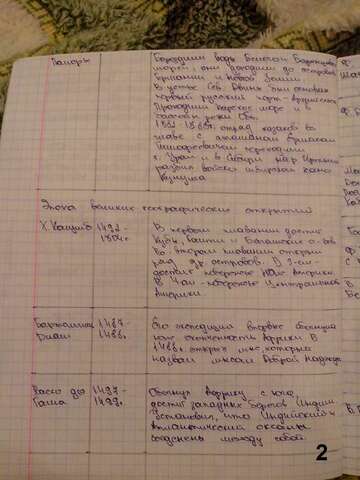 Поморы
Бороздили воды Белого и Баренцева
морей, они доходили до островов
и Новой Земли.
В устье Сев. Двины они основали
первый русский порт - Архангельск
Проходили Карское море и в
реки Обь.
1581-1585г. отряд казаков во
главе с атаманом Ермаком
Тимофеевичем переходили
г. Урал и в Сибири на р. Иртыш
разбил войско сибирского хана
Кучума
Эпоха великих географических открытий
Х. Колумб
1492-
1504г.
В первом плавании достиг
Кубы, Гаити и Багамские о-ва
Во втором плавании открыл
ряд др. островов. В 3-ем-
достиг побережье Юж. Америки.
В 4-ом - побережье Центральной
Америки.
Бартоломеу
Диаш
1487-
1488г.
Его экспедиция впервые обогнула
юж. оконечность Африки В
1488г. открыл мыс, который
назвал мысом Доброй Надежды
Васко да
Гама
1497-
1499г.
Обогнул Африку с юга,
достиг западных берегов Индии
Установил, что Индийский и
Атлантический океаны
соединены между собой.
2